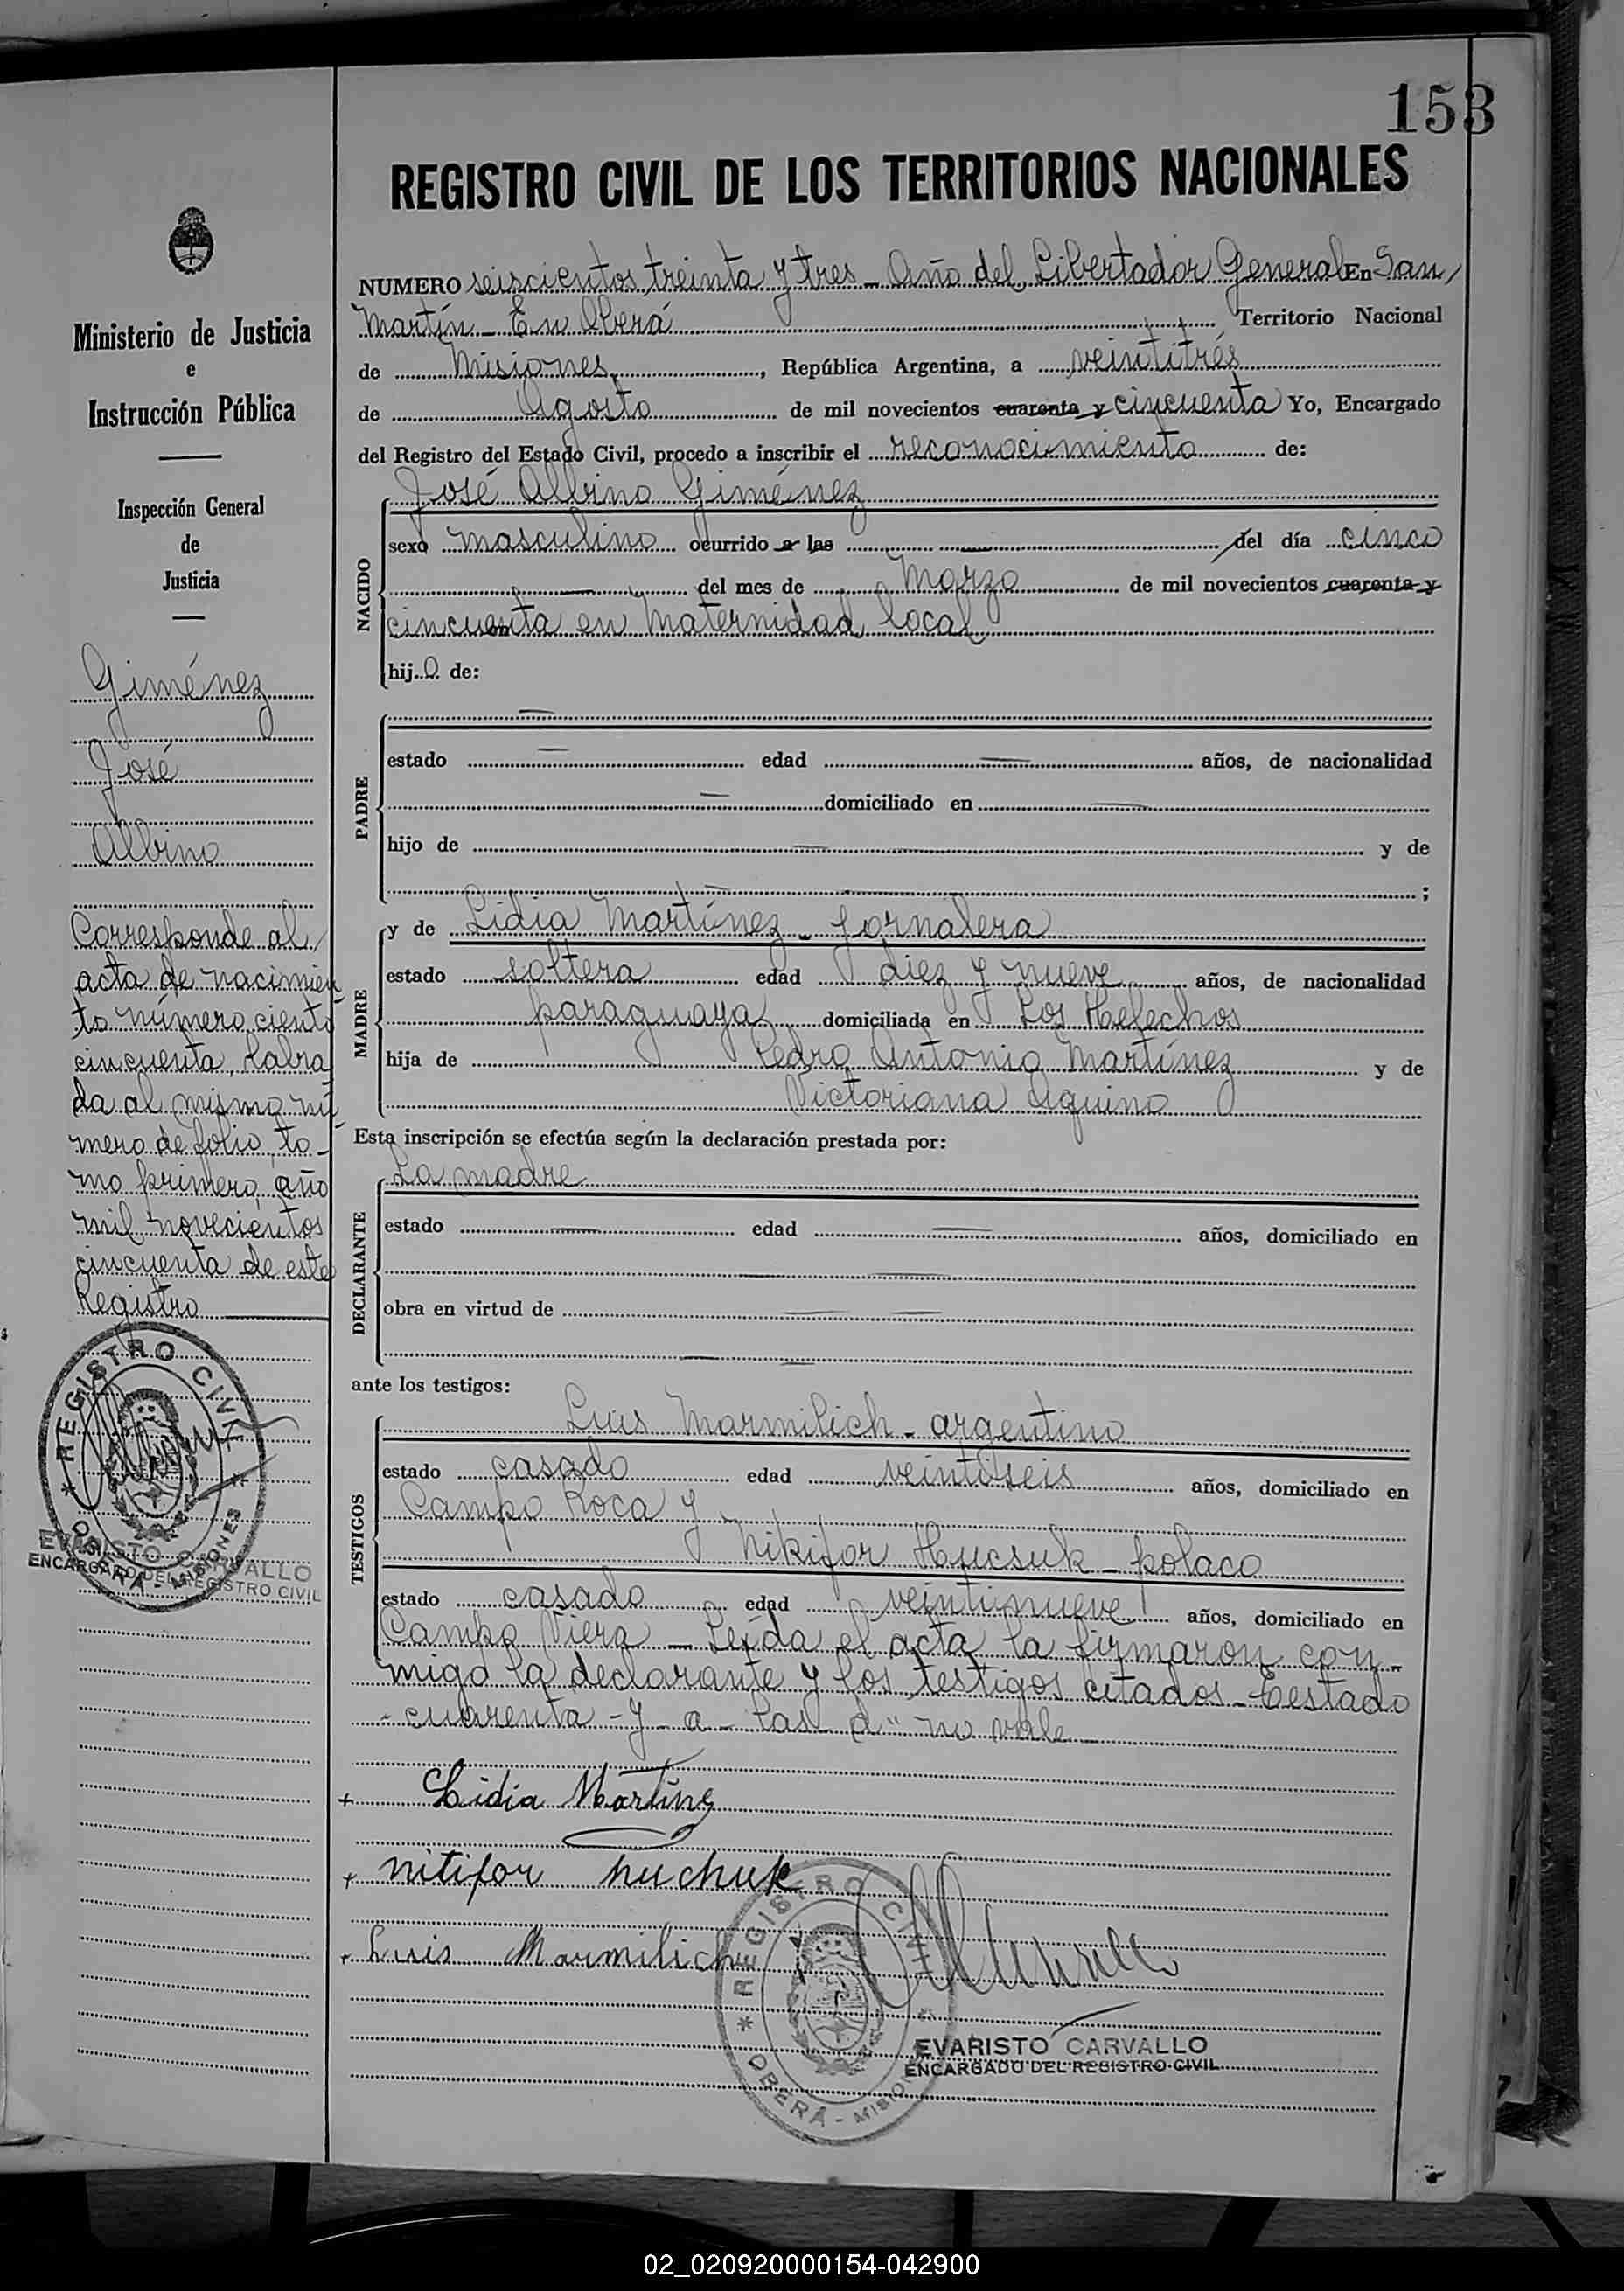 153
REGISTRO CIVIL DE LOS TERRITORIOS NACIONALES
Ministerio de Justicia
e
Instrucción Pública
Inspección General
de
Justicia
Giménez
José
Albino
Corresponde al
acta de nacimien
to número ciento
cincuenta, labra
da al mismo nú
mero de folio, to-
mo primero, año
mil novecientos
cincuenta de este
Registro
REGISTRO CIVIL
OBERÁ - MISIONES
EVARISTO CARVALLO
ENCARGADO DEL REGISTRO CIVIL
NUMERO seiscientos treinta y tres - Año del Libertador General En San
Martín - En Oberá Territorio Nacional
de Misiones, República Argentina, a veintitrés
de Agosto de mil novecientos cuarenta y cincuenta Yo, Encargado
del Registro del Estado Civil, procedo a inscribir el reconocimiento de:
NACIDO
José Albino Giménez
sexo masculino ocurrido a las del día cinco
del mes de Marzo de mil novecientos cuarenta y
cincuenta en Maternidad local
hijo de:
PADRE
estado edad años, de nacionalidad
domiciliado en
hijo de y de
;
MADRE
y de Lidia Martínez - jornalera
estado soltera edad diez y nueve años, de nacionalidad
paraguaya domiciliada en Los Helechos
hija de Pedro Antonio Martínez y de
Victoriana Aquino
Esta inscripción se efectúa según la declaración prestada por:
DECLARANTE
La madre
estado edad años, domiciliado en
obra en virtud de
ante los testigos:
TESTIGOS
Luis Marmilich - argentino
estado casado edad veintiseis años, domiciliado en
Campo Roca y
Nikifor Hucsuk - polaco
estado casado edad veintinueve años, domiciliado en
Campo Viera - Leída el acta la firmaron con-
migo la declarante y los testigos citados - Testado
- cuarenta - y - a - las - d" no vale
+ Lidia Martinez
+ nitifor huchuk
+ Luis Marmilich
REGISTRO CIVIL
OBERÁ - MISIONES
EVARISTO CARVALLO
ENCARGADO DEL REGISTRO CIVIL
02_020920000154-042900